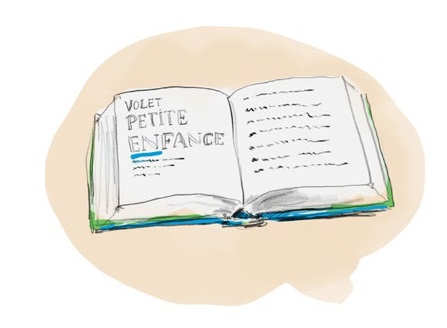 VOLET
PETITE
ENFANCE